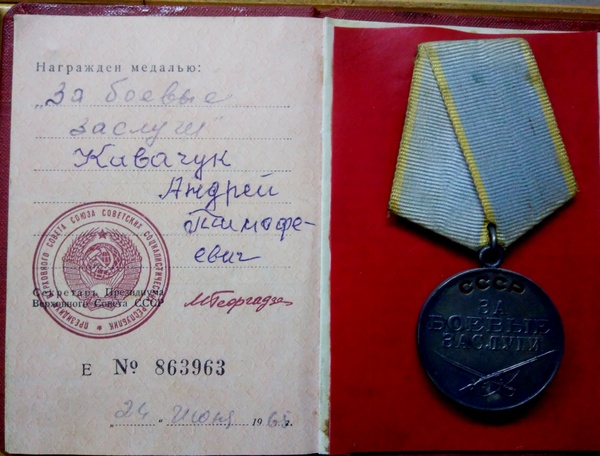 Награжден медалью:
„За боевые
заслуги"
Кивачук
Андрей
Тимофе-
евич
ПРЕЗИДИУМ ВЕРХОВНОГО СОВЕТА СОЮЗА СОВЕТСКИХ СОЦИАЛИСТИЧЕСКИХ РЕСПУБЛИК
Секретарь Президиума
Верховного Совета СССР
МГеоргадзе
Е № 863963
„24" июня 196 г.
СССР
ЗА
БОЕВЫЕ
ЗАСЛУГИ